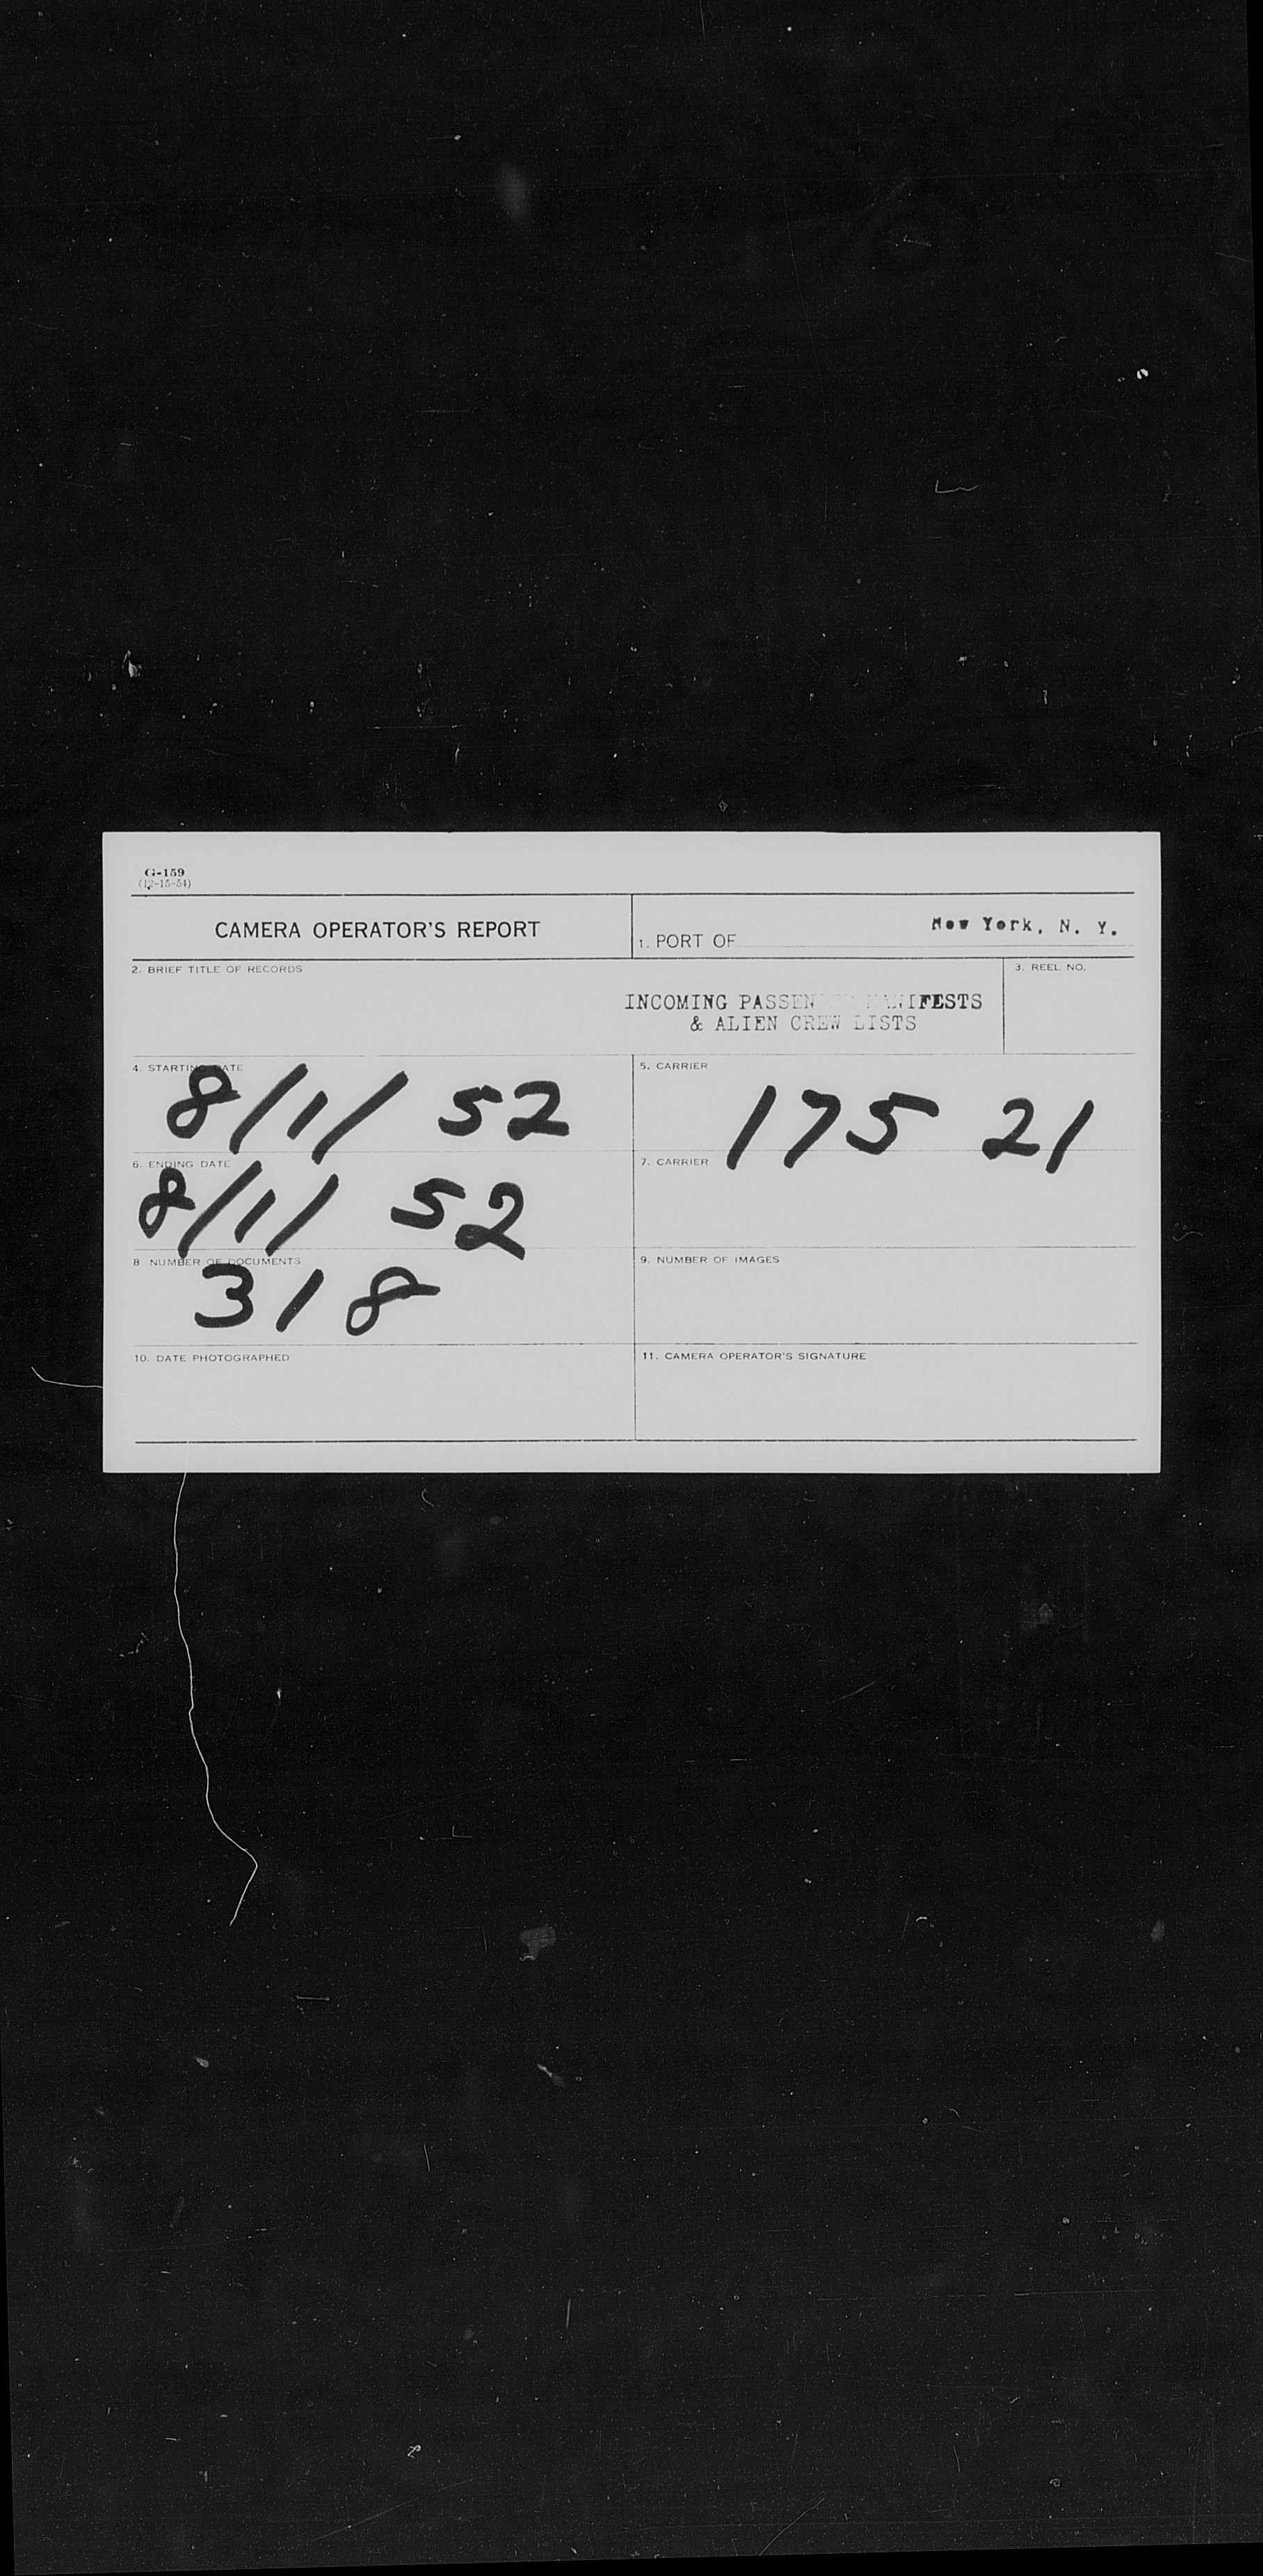 G-159
(12-15-54)
CAMERA OPERATOR'S REPORT
1. PORT OF New York, N. Y.
2. BRIEF TITLE OF RECORDS
INCOMING PASSEN MANIFESTS
& ALIEN CREW LISTS
3. REEL NO.
4. STARTING DATE
8/11/52
5. CARRIER
175 21
6. ENDING DATE
8/11/52
7. CARRIER
8 NUMBER OF DOCUMENTS
318
9. NUMBER OF IMAGES
10. DATE PHOTOGRAPHED
11. CAMERA OPERATOR'S SIGNATURE